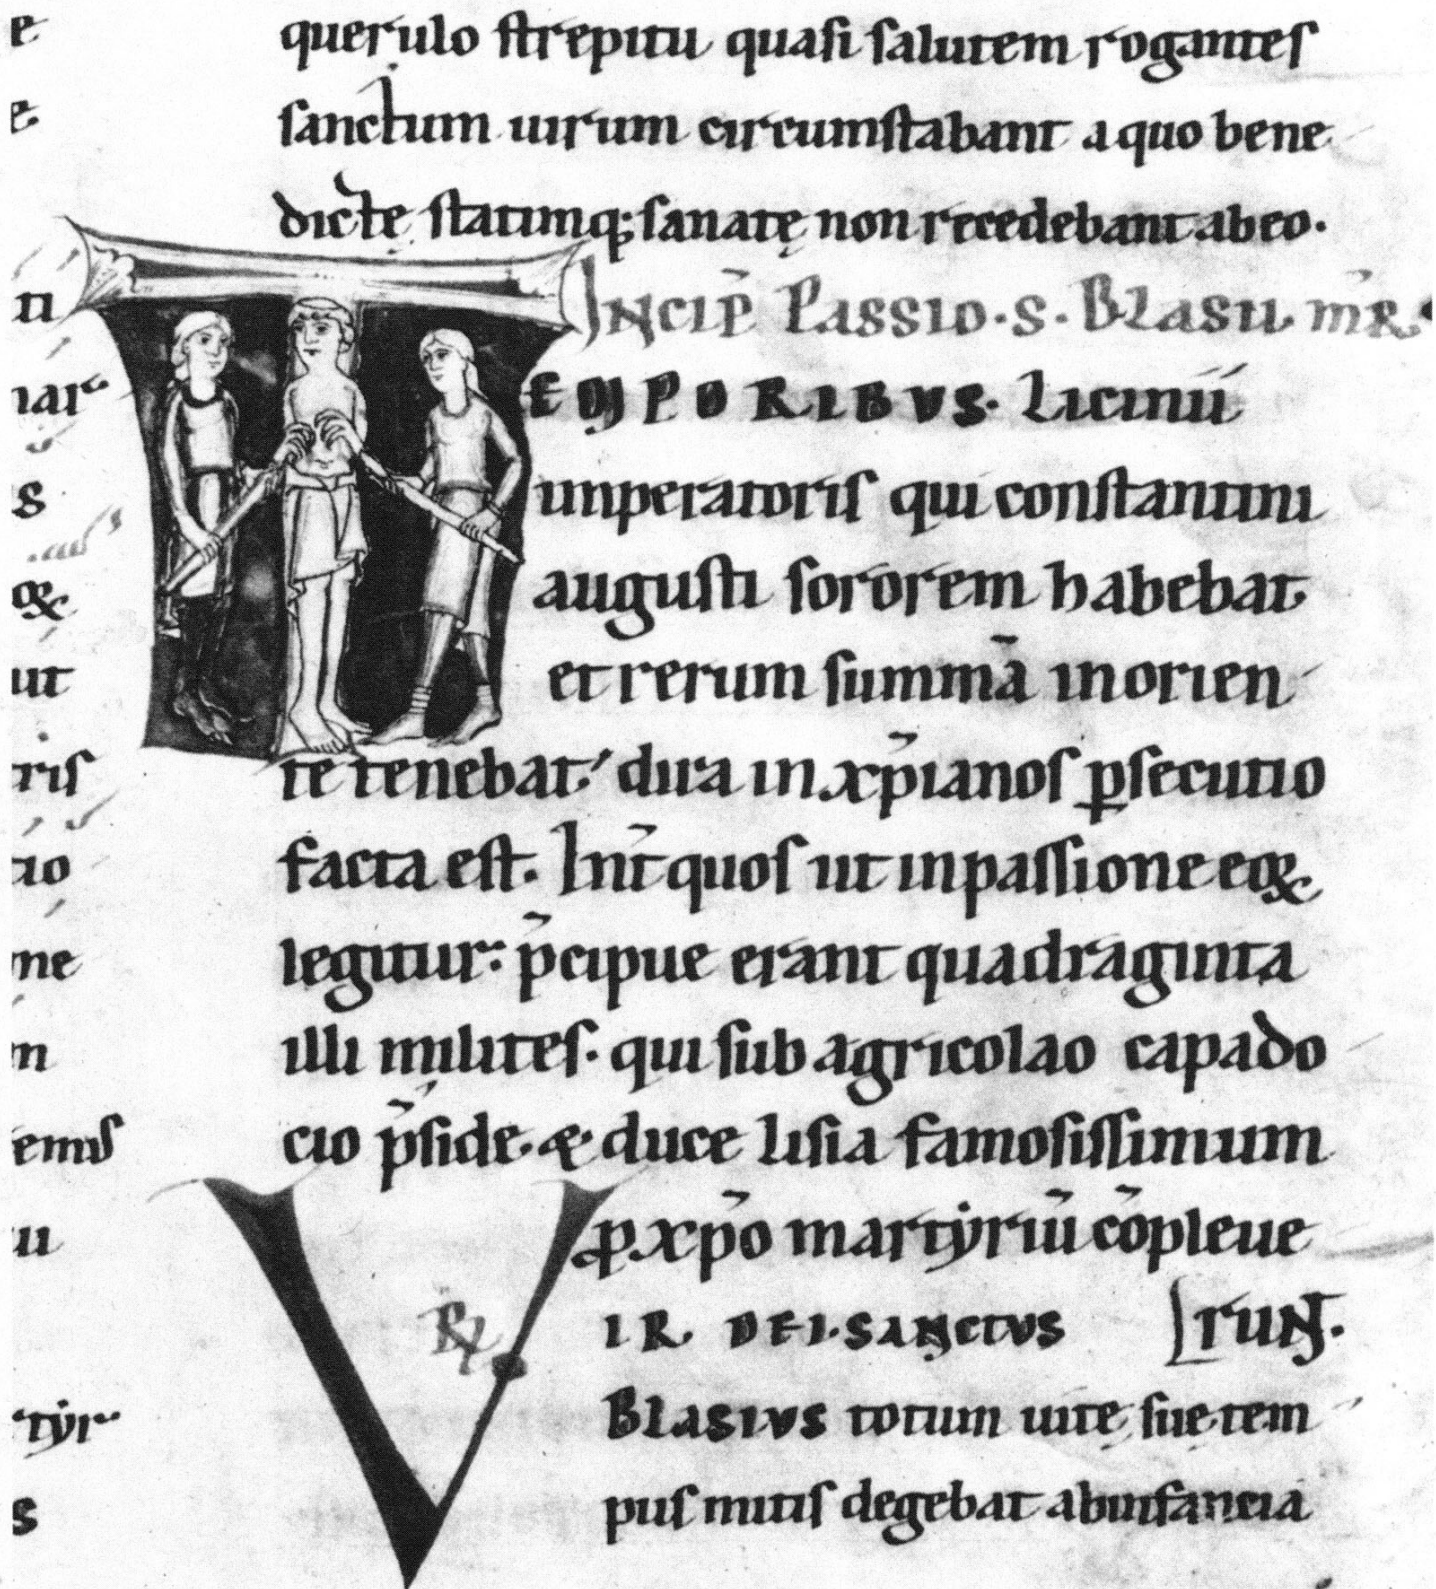 e
e
ti
nar
s
ut
tris
tio
ne
m
emus
tyr
s
querulo strepitu quasi salutem rogantes
sanctum uirum circumstabant a quo bene
dictę statimq; sanatę non recedebant ab eo.
Incip̄ Passio. S. Blasii m̄r.
TEMPORIBVS. Licinii
imperatoris qui constantini
augusti sororem habebat
et rerum summā in orien
te tenebat, dura in xp̄ianos ꝑsecutio
facta est. Int̄ quos ut in passione eoꝝ
legitur. p̄cipue erant quadraginta
illi milites. qui sub agricolao capado
cio p̄side. & duce lisia famosissimum
ꝓ xp̄o martyriū cōpleue
VIR DEI. SANCTVS [runt.
BLASIVS totum uitę suę tem
pus mitis degebat ab infancia